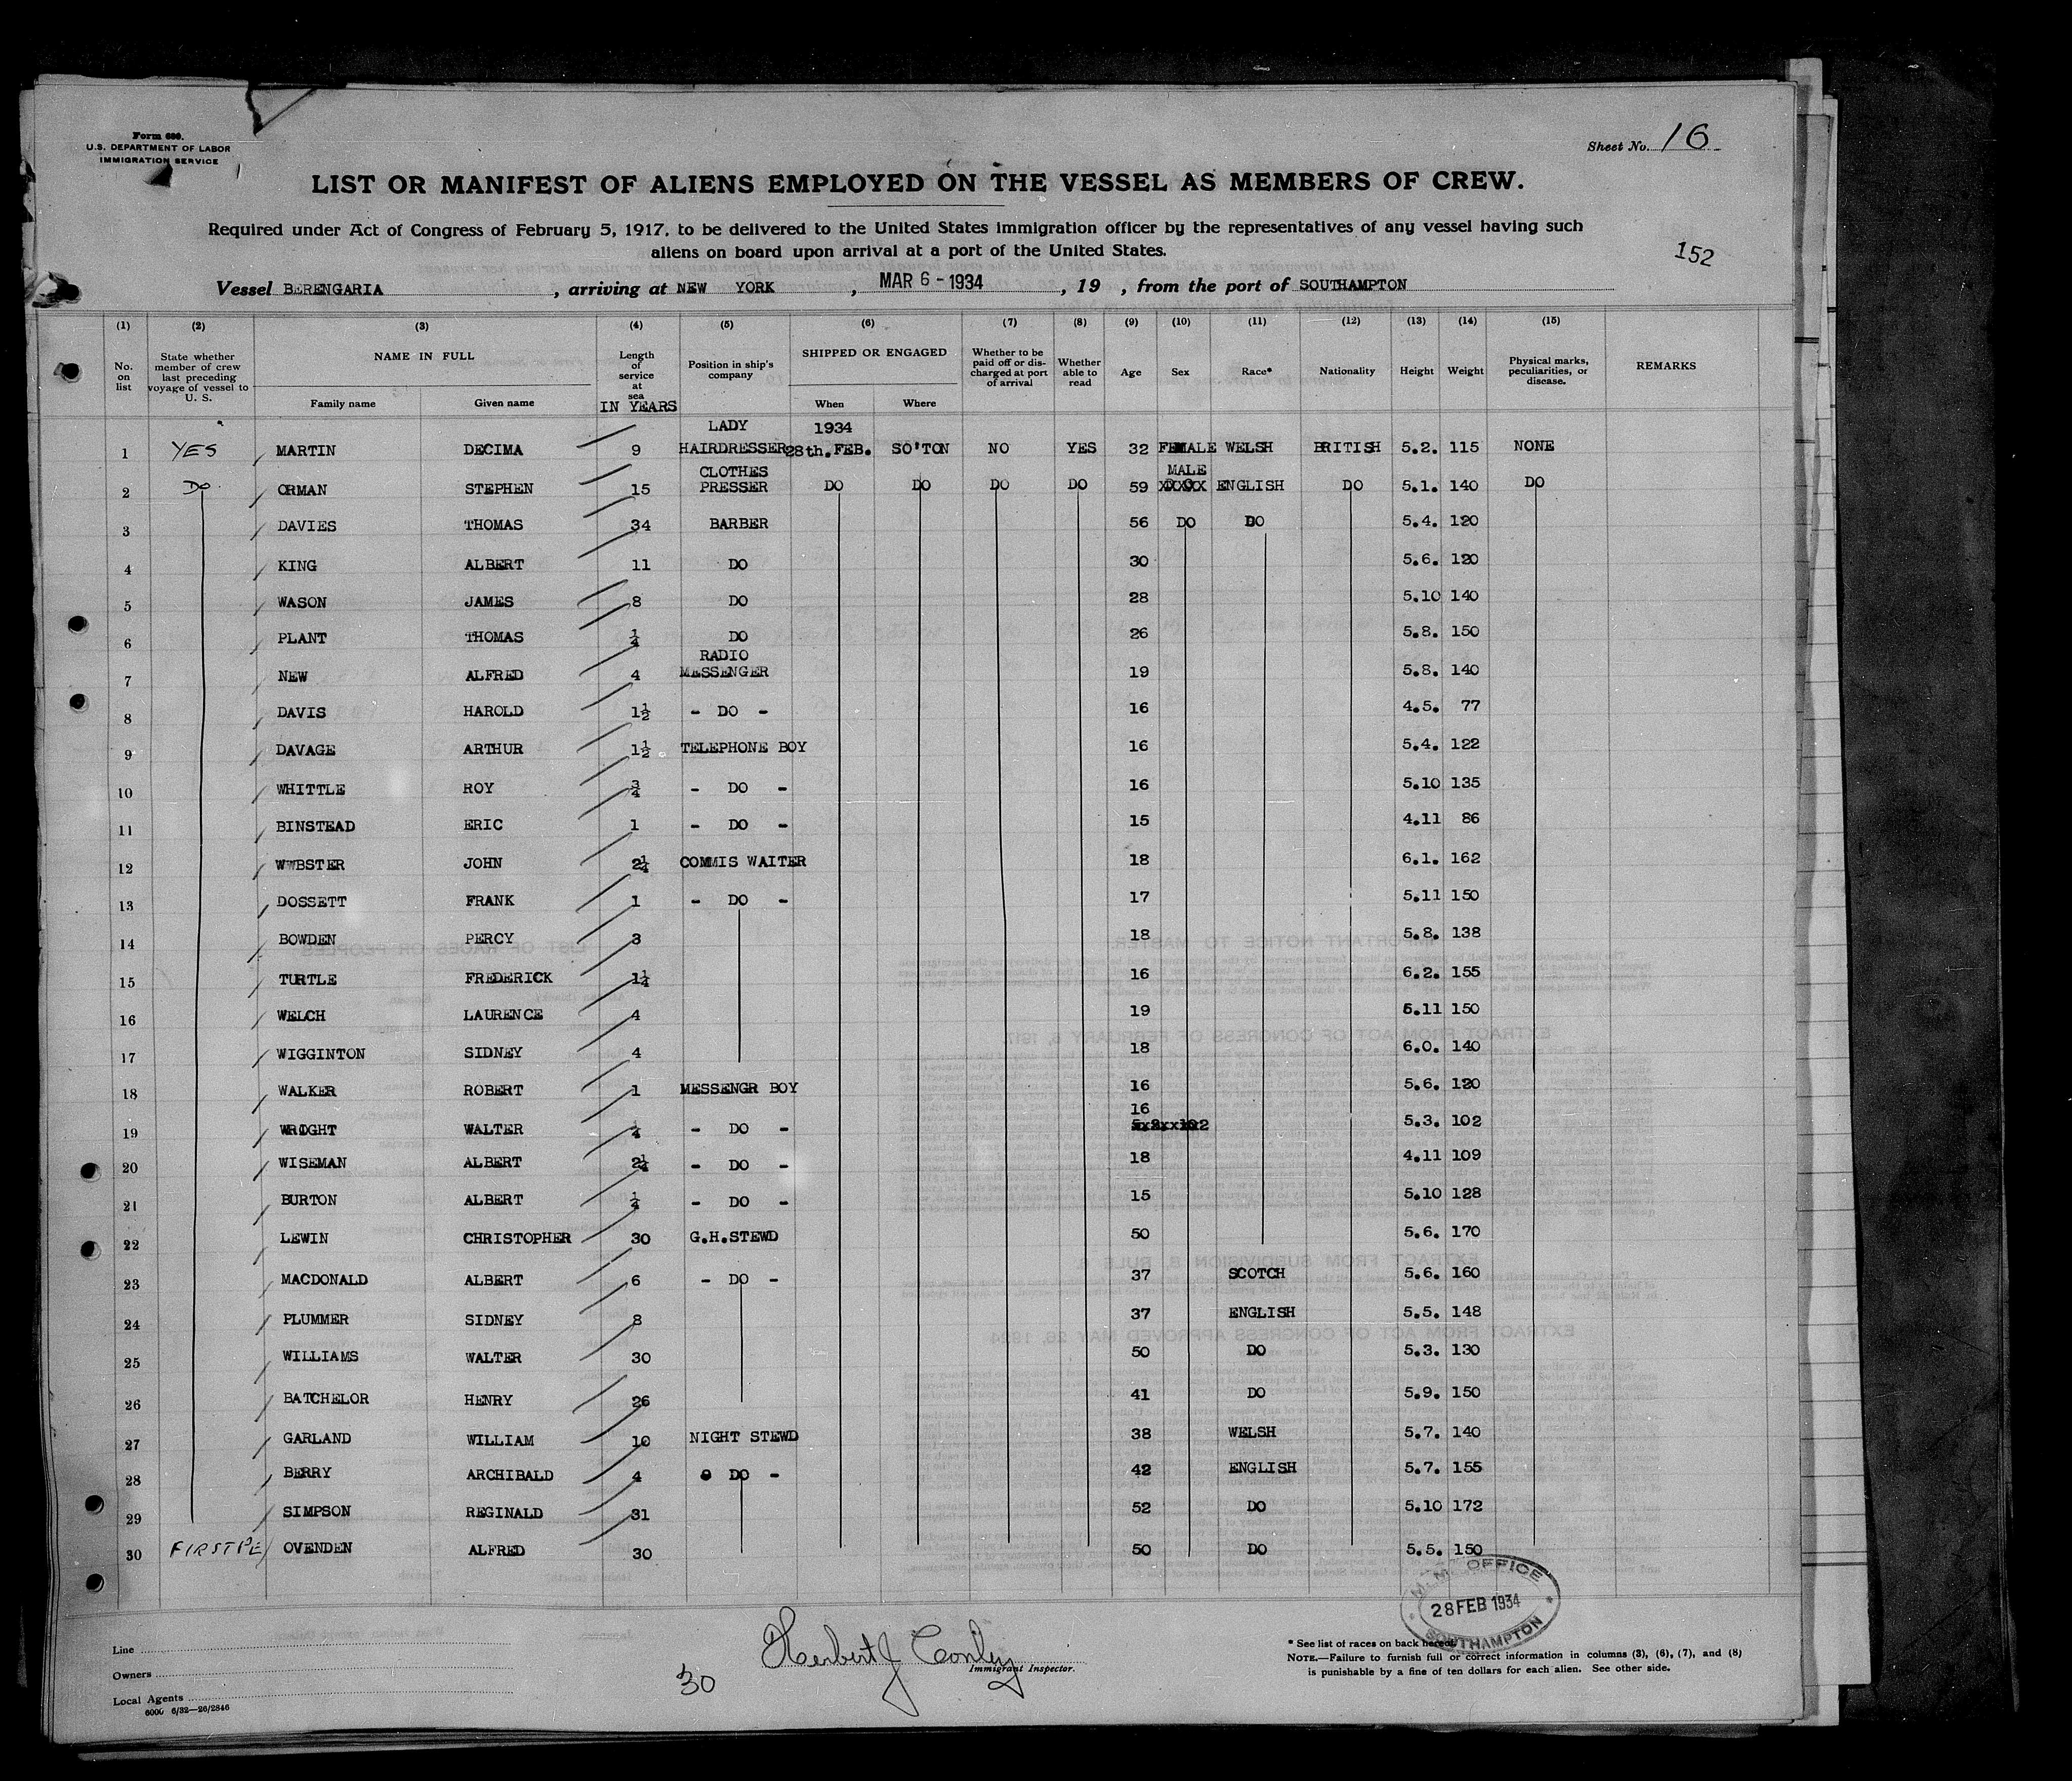 Form 680.
U.S. DEPARTMENT OF LABOR
IMMIGRATION SERVICE
Sheet No. 16
LIST OR MANIFEST OF ALIENS EMPLOYED ON THE VESSEL AS MEMBERS OF CREW.
Required under Act of Congress of February 5, 1917, to be delivered to the United States immigration officer by the representatives of any vessel having such
aliens on board upon arrival at a port of the United States.
152
Vessel BERENGARIA, arriving at NEW YORK, MAR 6 - 1934, 19 , from the port of SOUTHAMPTON
(1) (2) (3) (4) (5) (6) (7) (8) (9) (10) (11) (12) (13) (14) (15)
No. on list State whether member of crew last preceding voyage of vessel to U. S. NAME IN FULL Family name Given name Length of service at sea IN YEARS Position in ship's company SHIPPED OR ENGAGED When Where Whether to be paid off or discharged at port of arrival Whether able to read Age Sex Race* Nationality Height Weight Physical marks, peculiarities, or disease. REMARKS
1 YES MARTIN DECIMA 9 LADY HAIRDRESSER 1934 28th. FEB. SO'TON NO YES 32 FEMALE WELSH BRITISH 5.2. 115 NONE
2 DO ORMAN STEPHEN 15 CLOTHES PRESSER DO DO DO DO 59 MALE ENGLISH DO 5.1. 140 DO
3 DAVIES THOMAS 34 BARBER 56 DO DO 5.4. 120
4 KING ALBERT 11 DO 30 5.6. 120
5 WASON JAMES 8 DO 28 5.10 140
6 PLANT THOMAS 1/4 DO 26 5.8. 150
7 NEW ALFRED 4 RADIO MESSENGER 19 5.8. 140
8 DAVIS HAROLD 1½ - DO - 16 4.5. 77
9 DAVAGE ARTHUR 1½ TELEPHONE BOY 16 5.4. 122
10 WHITTLE ROY ¾ - DO - 16 5.10 135
11 BINSTEAD ERIC 1 - DO - 15 4.11 86
12 WWBSTER JOHN 2¼ COMMIS WAITER 18 6.1. 162
13 DOSSETT FRANK 1 - DO - 17 5.11 150
14 BOWDEN PERCY 3 18 5.8. 138
15 TURTLE FREDERICK 1¼ 16 6.2. 155
16 WELCH LAURENCE 4 19 5.11 150
17 WIGGINTON SIDNEY 4 18 6.0. 140
18 WALKER ROBERT 1 MESSENGR BOY 16 5.6. 120
19 WRIGHT WALTER ¼ - DO - 16 5.3. 102
20 WISEMAN ALBERT 2¼ - DO - 18 4.11 109
21 BURTON ALBERT ¼ - DO - 15 5.10 128
22 LEWIN CHRISTOPHER 30 G.H.STEWD 50 5.6. 170
23 MACDONALD ALBERT 6 - DO - 37 SCOTCH 5.6. 160
24 PLUMMER SIDNEY 8 37 ENGLISH 5.5. 148
25 WILLIAMS WALTER 30 50 DO 5.3. 130
26 BATCHELOR HENRY 26 41 DO 5.9. 150
27 GARLAND WILLIAM 10 NIGHT STEWD 38 WELSH 5.7. 140
28 BERRY ARCHIBALD 4 DO - 42 ENGLISH 5.7. 155
29 SIMPSON REGINALD 31 52 DO 5.10 172
30 FIRST OVENDEN ALFRED 30 50 DO 5.5. 150
M.M. OFFICE
28 FEB 1934
SOUTHAMPTON
Line
Owners
Local Agents
6000 6/32—26/2846
30
Herbert J Conley
Immigrant Inspector.
* See list of races on back hereof.
NOTE.—Failure to furnish full or correct information in columns (3), (6), (7), and (8)
is punishable by a fine of ten dollars for each alien. See other side.